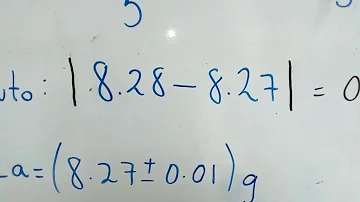 5
uto: | 8.28 - 8.27 | = 0
a = (8.27 ± 0.01) g